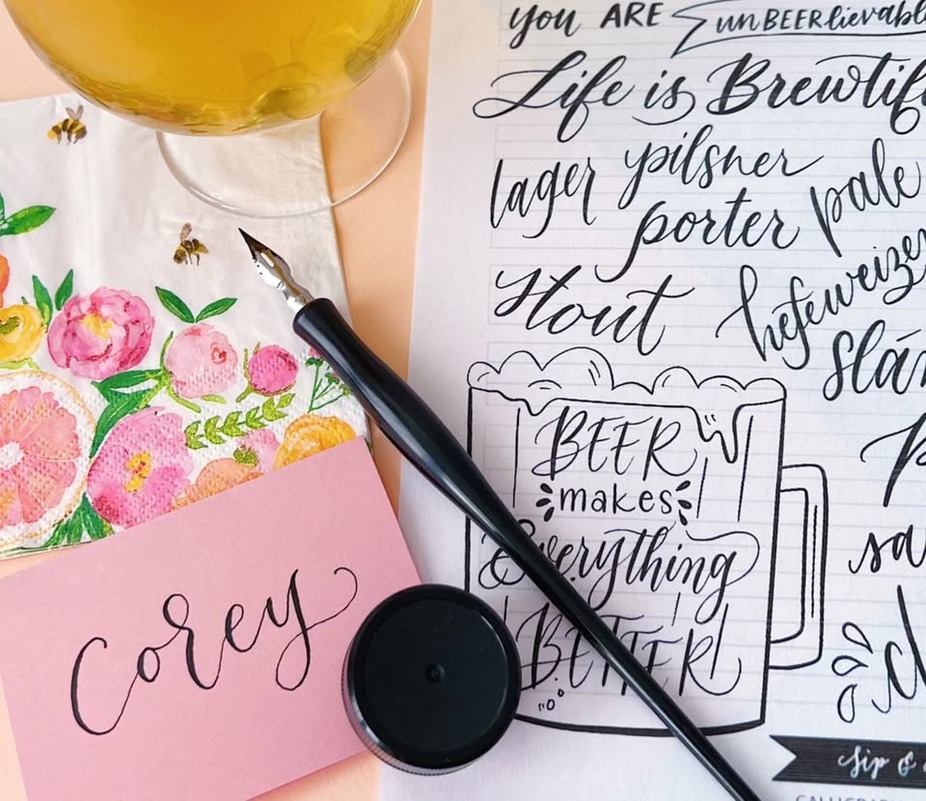 you ARE unBEERlievabl
Life is Brewtif
lager pilsner
porter pale
Stout hefeweizen
Slán
BEER
makes
Everything
BETTER
Corey
Sip &